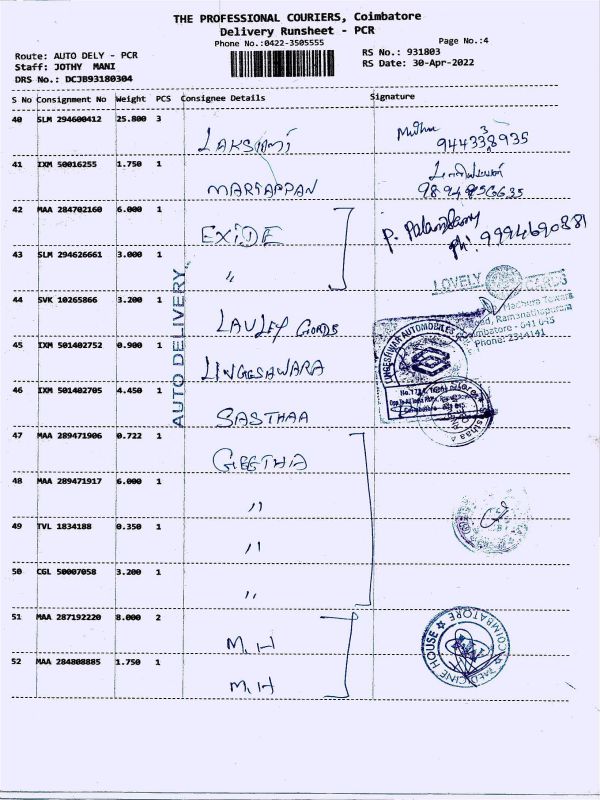 THE PROFESSIONAL COURIERS, Coimbatore
Delivery Runsheet - PCR
Phone No.:0422-3505555
Page No.:4
Route: AUTO DELY - PCR
RS No.: 931803
Staff: JOTHY MANI
RS Date: 30-Apr-2022
DRS No.: DCJB93180304
S No Consignment No Weight PCS Consignee Details Signature
40 SLM 294600412 25.800 3
LAKSHMI
41 IXM 50016255 1.750 1
MARIAPPAN
9894856635
42 MAA 284702160 6.000 1
EXIDE
Ph: 9994690881
43 SLM 294626661 3.000 1
"
AUTO DELIVERY
LOVELY CARDS
44 SVK 10265866 3.200 1
Phone: 2314141
45 IXM 501402752 0.900 1
LINGESWARA
LINGESHWAR AUTOMOBILES
46 IXM 501402705 4.450 1
SASTHAA
47 MAA 289471906 0.722 1
GEETHA
48 MAA 289471917 6.000 1
"
49 TVL 1834188 0.350 1
"
50 CGL 50007058 3.200 1
"
51 MAA 287192220 8.000 2
M.H
52 MAA 284808885 1.750 1
M.H
MEDICINE HOUSE ★ COIMBATORE ★